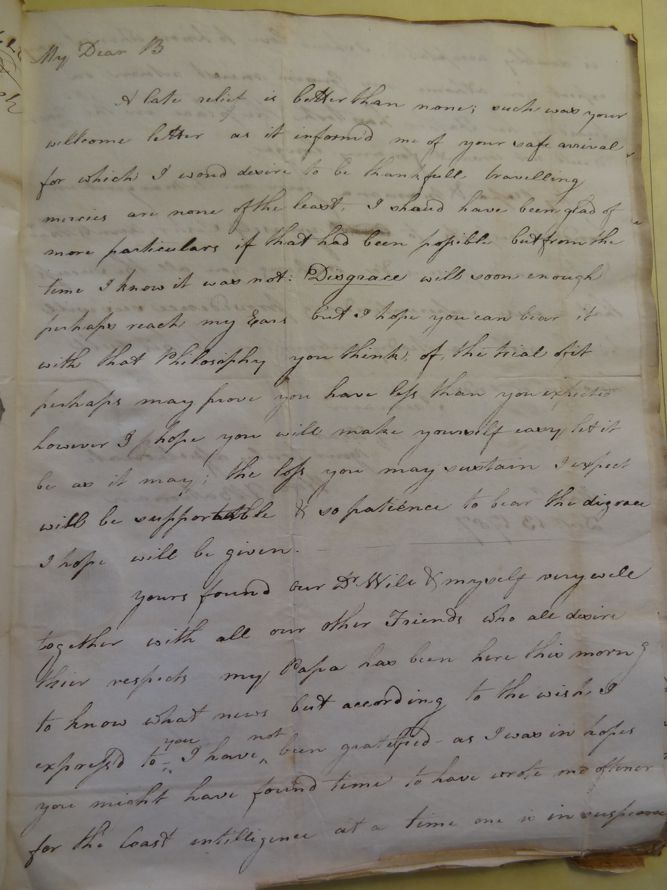 My Dear B
A late relief is better than none; such was your
wellcome letter as it inform'd me of your safe arrival
for which I woud desire to be thankfull travelling
mercies are none of the least, I shoud have been glad of
more particulars if that had been possible but from the
time I know it was not: Disgrace will soon enough
perhaps reach my Ears but I hope you can bear it
with that Philosophy you think, of, the trial of it
perhaps may prove you have less than you expected
however I hope you will make yourself easy let it
be as it may; the loss you may sustain I expect
will be supportable & so patience to bear the disgrace
I hope will be given.
yours found our Dr Will & myself very well
together with all our other Friends who all desire
thier respects my Papa has been here this morng
to know what news but according to the wish I
express'd to you I have not been gratified - as I was in hopes
you might have found time to have wrote me oftener
for the least intilligence at a time one is in suspence